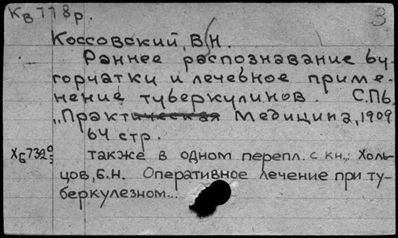 Кв 778р.
3
Коссовский, В.Н.
Раннее распознавание бу-
горчатки и лечебное приме-
нение туберкулинов. С.Пб,
"Практическая Медицина, 1909
64 стр.
также в одном перепл. с кн.: Холь-
цов, Б.Н. Оперативное лечение при ту-
беркулезном...